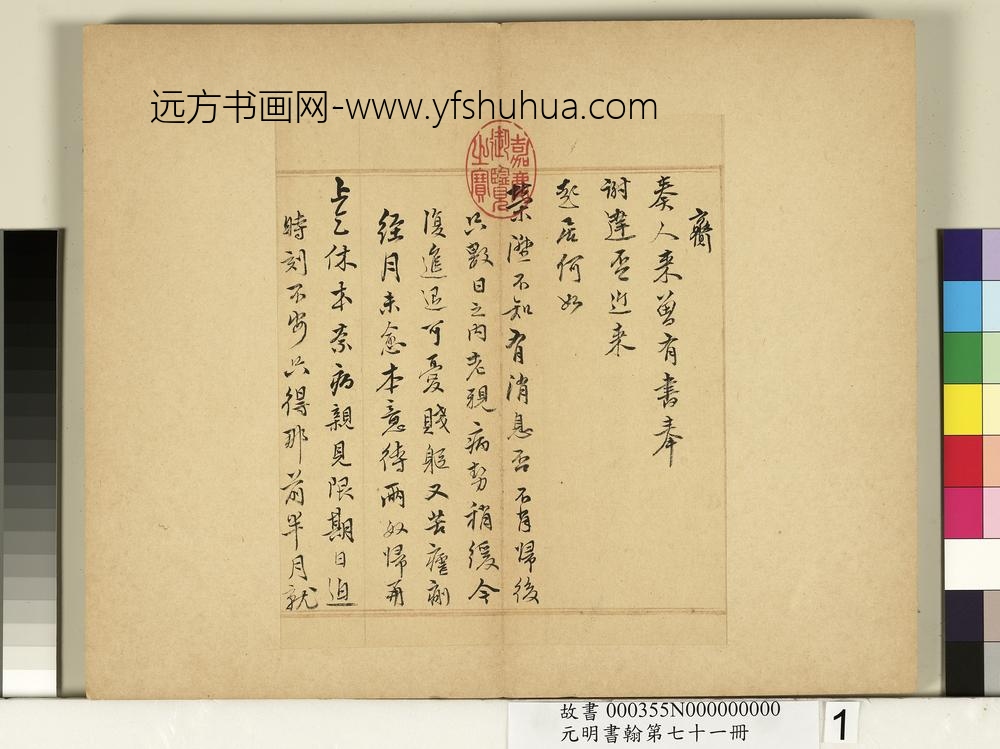 远方书画网-www.yfshuhua.com
齎
奏人来曾有書奉
謝達否近来
起居何如
榮陞不知有消息否不肖歸後
只數日之内老親病勢稍緩今
復進退可憂賤軀又苦瘧痢
經月未愈本意待兩奴歸再
上乞休本奈病親見限期日迫
時刻不安只得那前半月就
嘉慶御覽之寶
故書 000355N000000000
元明書翰第七十一冊
1